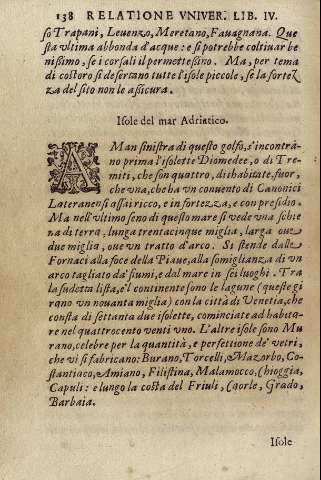 138 RELATIONE VNIVER. LIB. IV.
so Trapani, Leuenzo, Meretano, Fauagnana. Que
sta vltima abbonda d'acque: e si potrebbe coltiuar be
nissimo, se i corsali il permettessino. Ma, per tema
di costoro si desertano tutte l'isole piccole, se la fortez
za del sito non le assicura.
Isole del mar Adriatico.
A Man sinistra di questo golfo, s'incontra-
no prima l'isolette Diomedee, o di Tre-
miti, che son quattro, dishabitate, fuor,
che vna, che ha vn conuento di Canonici
Lateranensi assai ricco, e in fortezza, e con presidio.
Ma nell'vltimo seno di questo mare si vede vna schie
na di terra, lunga trentacinque miglia, larga oue
due miglia, oue vn tratto d'arco. Si stende dalle
Fornaci alla foce della Piaue, alla somiglianza di vn
arco tagliato da' fiumi, e dal mare in sei luoghi. Tra
la sudetta lista, e'l continente sono le lagune (queste gi
rano vn nouanta miglia) con la città di Venetia, che
consta di settanta due isolette, cominciate ad habita-
re nel quattrocento venti vno. L'altre isole sono Mu
rano, celebre per la quantità, e perfettione de' vetri,
che vi si fabricano: Burano, Torcelli, Mazorbo, Co-
stantiaco, Amiano, Filistina, Malamocco, Chioggia,
Capuli: e lungo la costa del Friuli, Caorle, Grado,
Barbaia.
Isole